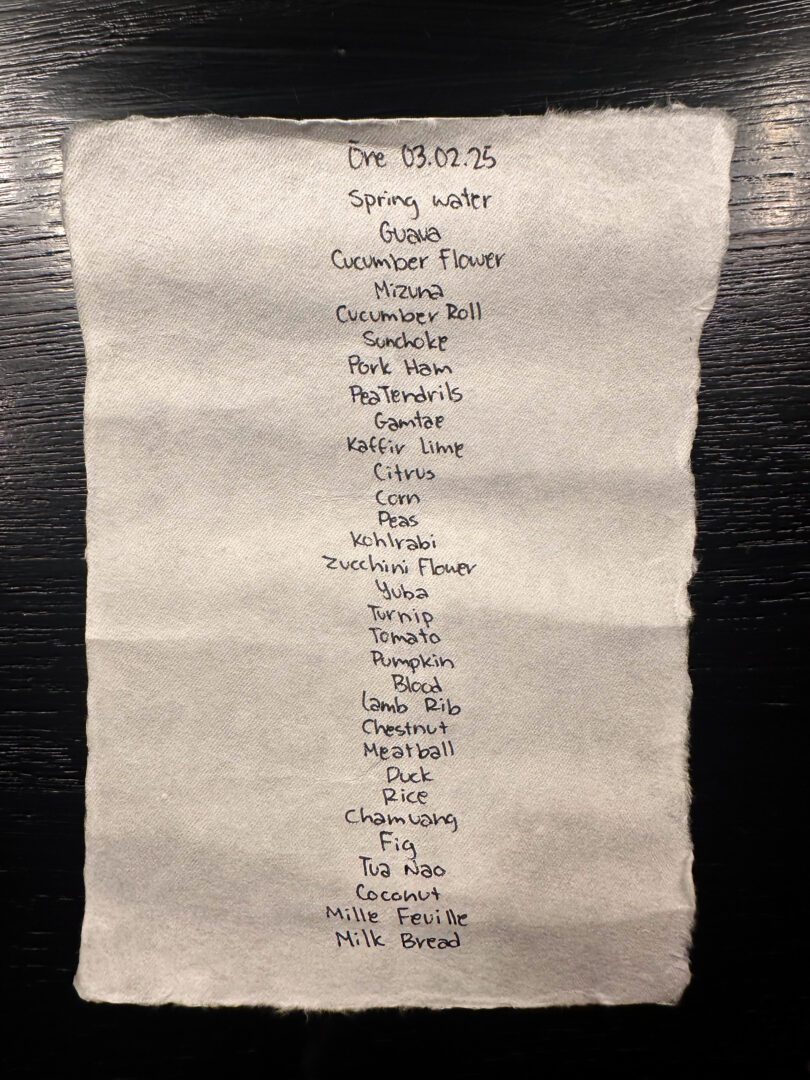 Ōre 03.02.25
Spring water
Guava
Cucumber Flower
Mizuna
Cucumber Roll
Sunchoke
Pork Ham
Pea Tendrils
Gamtae
Kaffir Lime
Citrus
Corn
Peas
Kohlrabi
Zucchini Flower
Yuba
Turnip
Tomato
Pumpkin
Blood
Lamb Rib
Chestnut
Meatball
Duck
Rice
Chamuang
Fig
Tua Nao
Coconut
Mille Feuille
Milk Bread